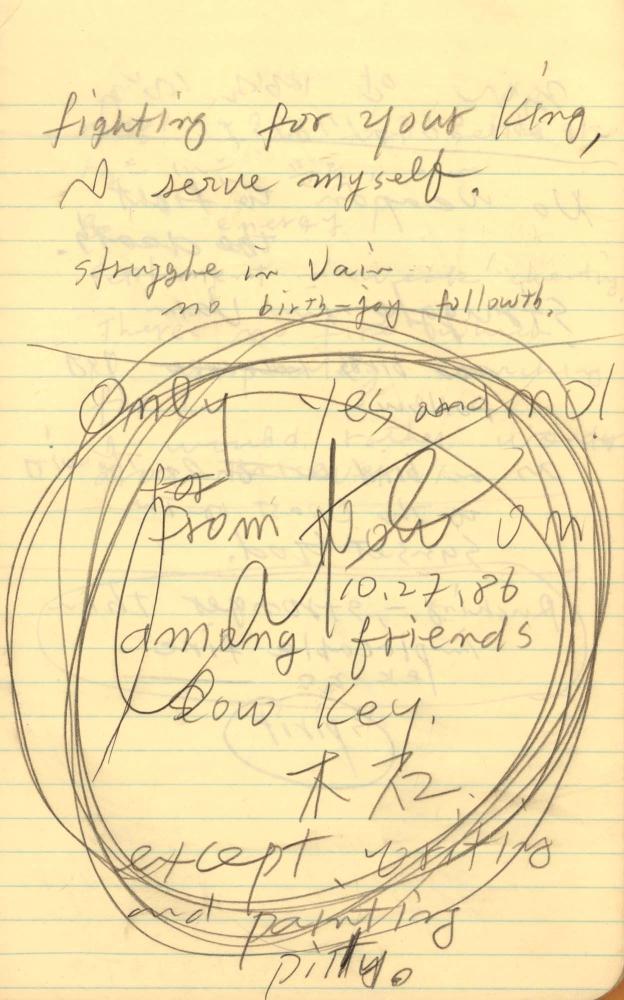 fighting for your King,
I serve myself.
struggle in Vain
no birth-joy followth.
Only Yes and no!
for
From Now on
10.27.86
among friends
low key.
木
except writing
and painting
pitty.